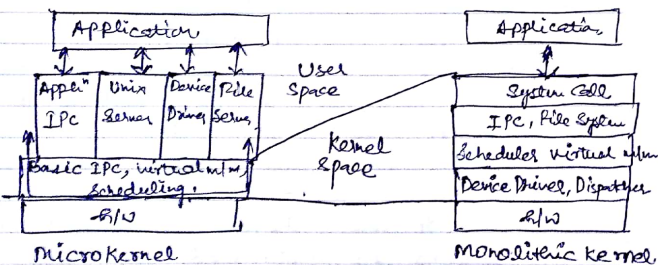 Application
Appln IPC
Unix Server
Device Driver
File Server
Basic IPC, virtual m/m,
scheduling.
h/w
Microkernel
User
Space
Kernel
Space
Application
System Call
IPC, File System
Scheduler virtual m/m
Device Driver, Dispatcher
h/w
Monolithic Kernel